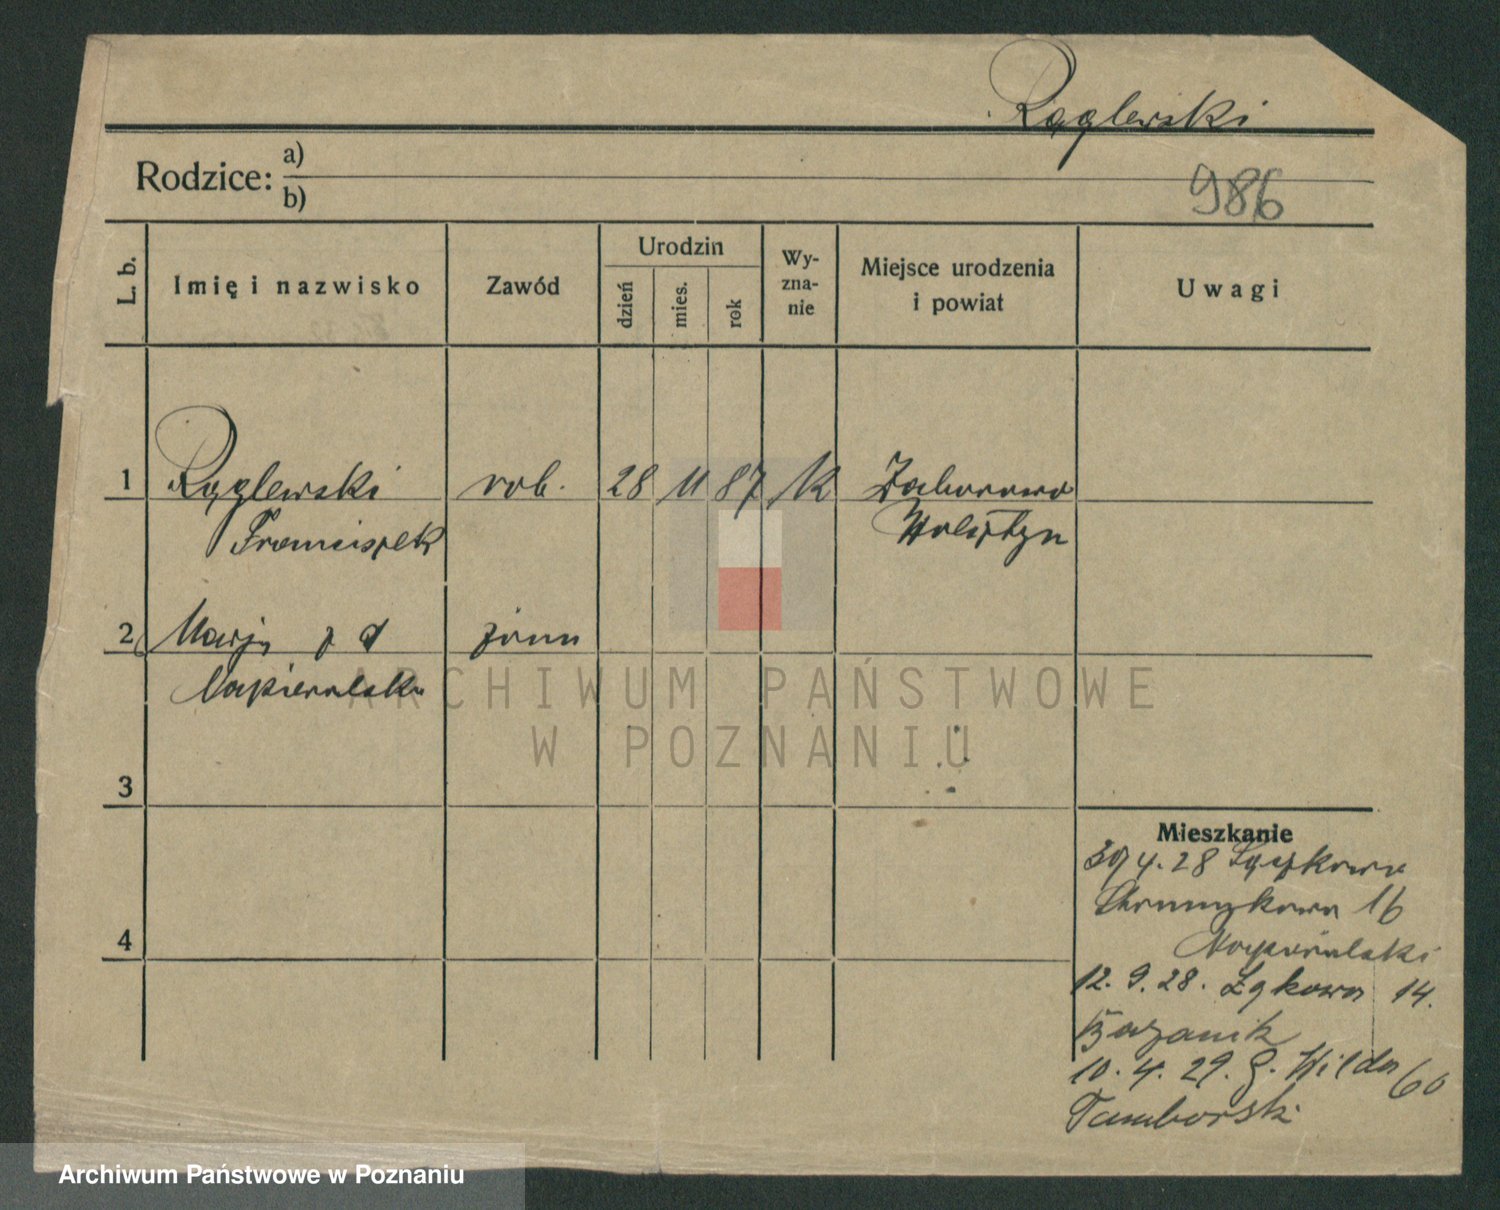 Rąglewski
Rodzice: a)
b)
986
L. b.
Imię i nazwisko
Zawód
Urodzin
dzień
mies.
rok
Wy-
zna-
nie
Miejsce urodzenia
i powiat
Uwagi
1 Rąglewski rob. 28 11 87 K Zaborowo
Franciszek Wolsztyn
2 Marja z d żona
Napieralska
ARCHIWUM PAŃSTWOWE
W POZNANIU
3
Mieszkanie
30/4.28
16
4
Napieralski
12. 9. 28. Łąkowa 14.
10. 4. 29. G. Wilda 60
Tamborski
Archiwum Państwowe w Poznaniu